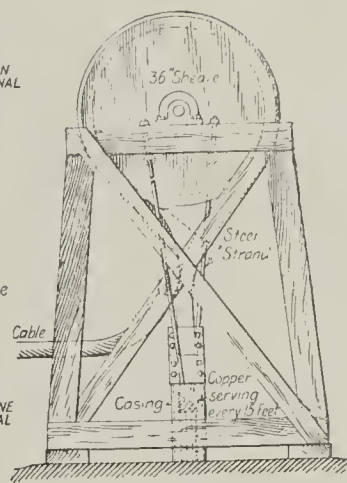 N
NAL
36" Sheave
Steel
"Strand"
e
Cable
Copper
Casing serving
every 15 feet
NE
AL